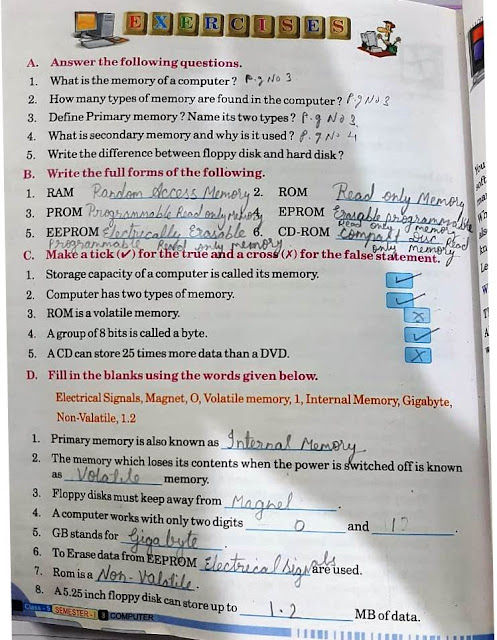 EXERCISES
A. Answer the following questions.
1. What is the memory of a computer? P.g No 3
2. How many types of memory are found in the computer? P.g No 3
3. Define Primary memory? Name its two types? P.g No 3
4. What is secondary memory and why is it used? P.g No 4
5. Write the difference between floppy disk and hard disk?
B. Write the full forms of the following.
1. RAM Random Access Memory 2. ROM Read only Memory
3. PROM Programmable Read only memory 4. EPROM Erasable programmable Read only memory
5. EEPROM Electrically Erasable Programmable Read only memory 6. CD-ROM Compact Disc Read only Memory
C. Make a tick (✔) for the true and a cross (✗) for the false statement.
1. Storage capacity of a computer is called its memory. ✓
2. Computer has two types of memory. ✓
3. ROM is a volatile memory. ✗
4. A group of 8 bits is called a byte. ✓
5. A CD can store 25 times more data than a DVD. ✗
D. Fill in the blanks using the words given below.
Electrical Signals, Magnet, O, Volatile memory, 1, Internal Memory, Gigabyte,
Non-Valatile, 1.2
1. Primary memory is also known as Internal Memory
2. The memory which loses its contents when the power is switched off is known
as Volatile memory.
3. Floppy disks must keep away from Magnet.
4. A computer works with only two digits 0 and 1.
5. GB stands for Gigabyte
6. To Erase data from EEPROM Electrical signals are used.
7. Rom is a Non-Volatile.
8. A 5.25 inch floppy disk can store up to 1.2 MB of data.
Class - 5 SEMESTER - I COMPUTER